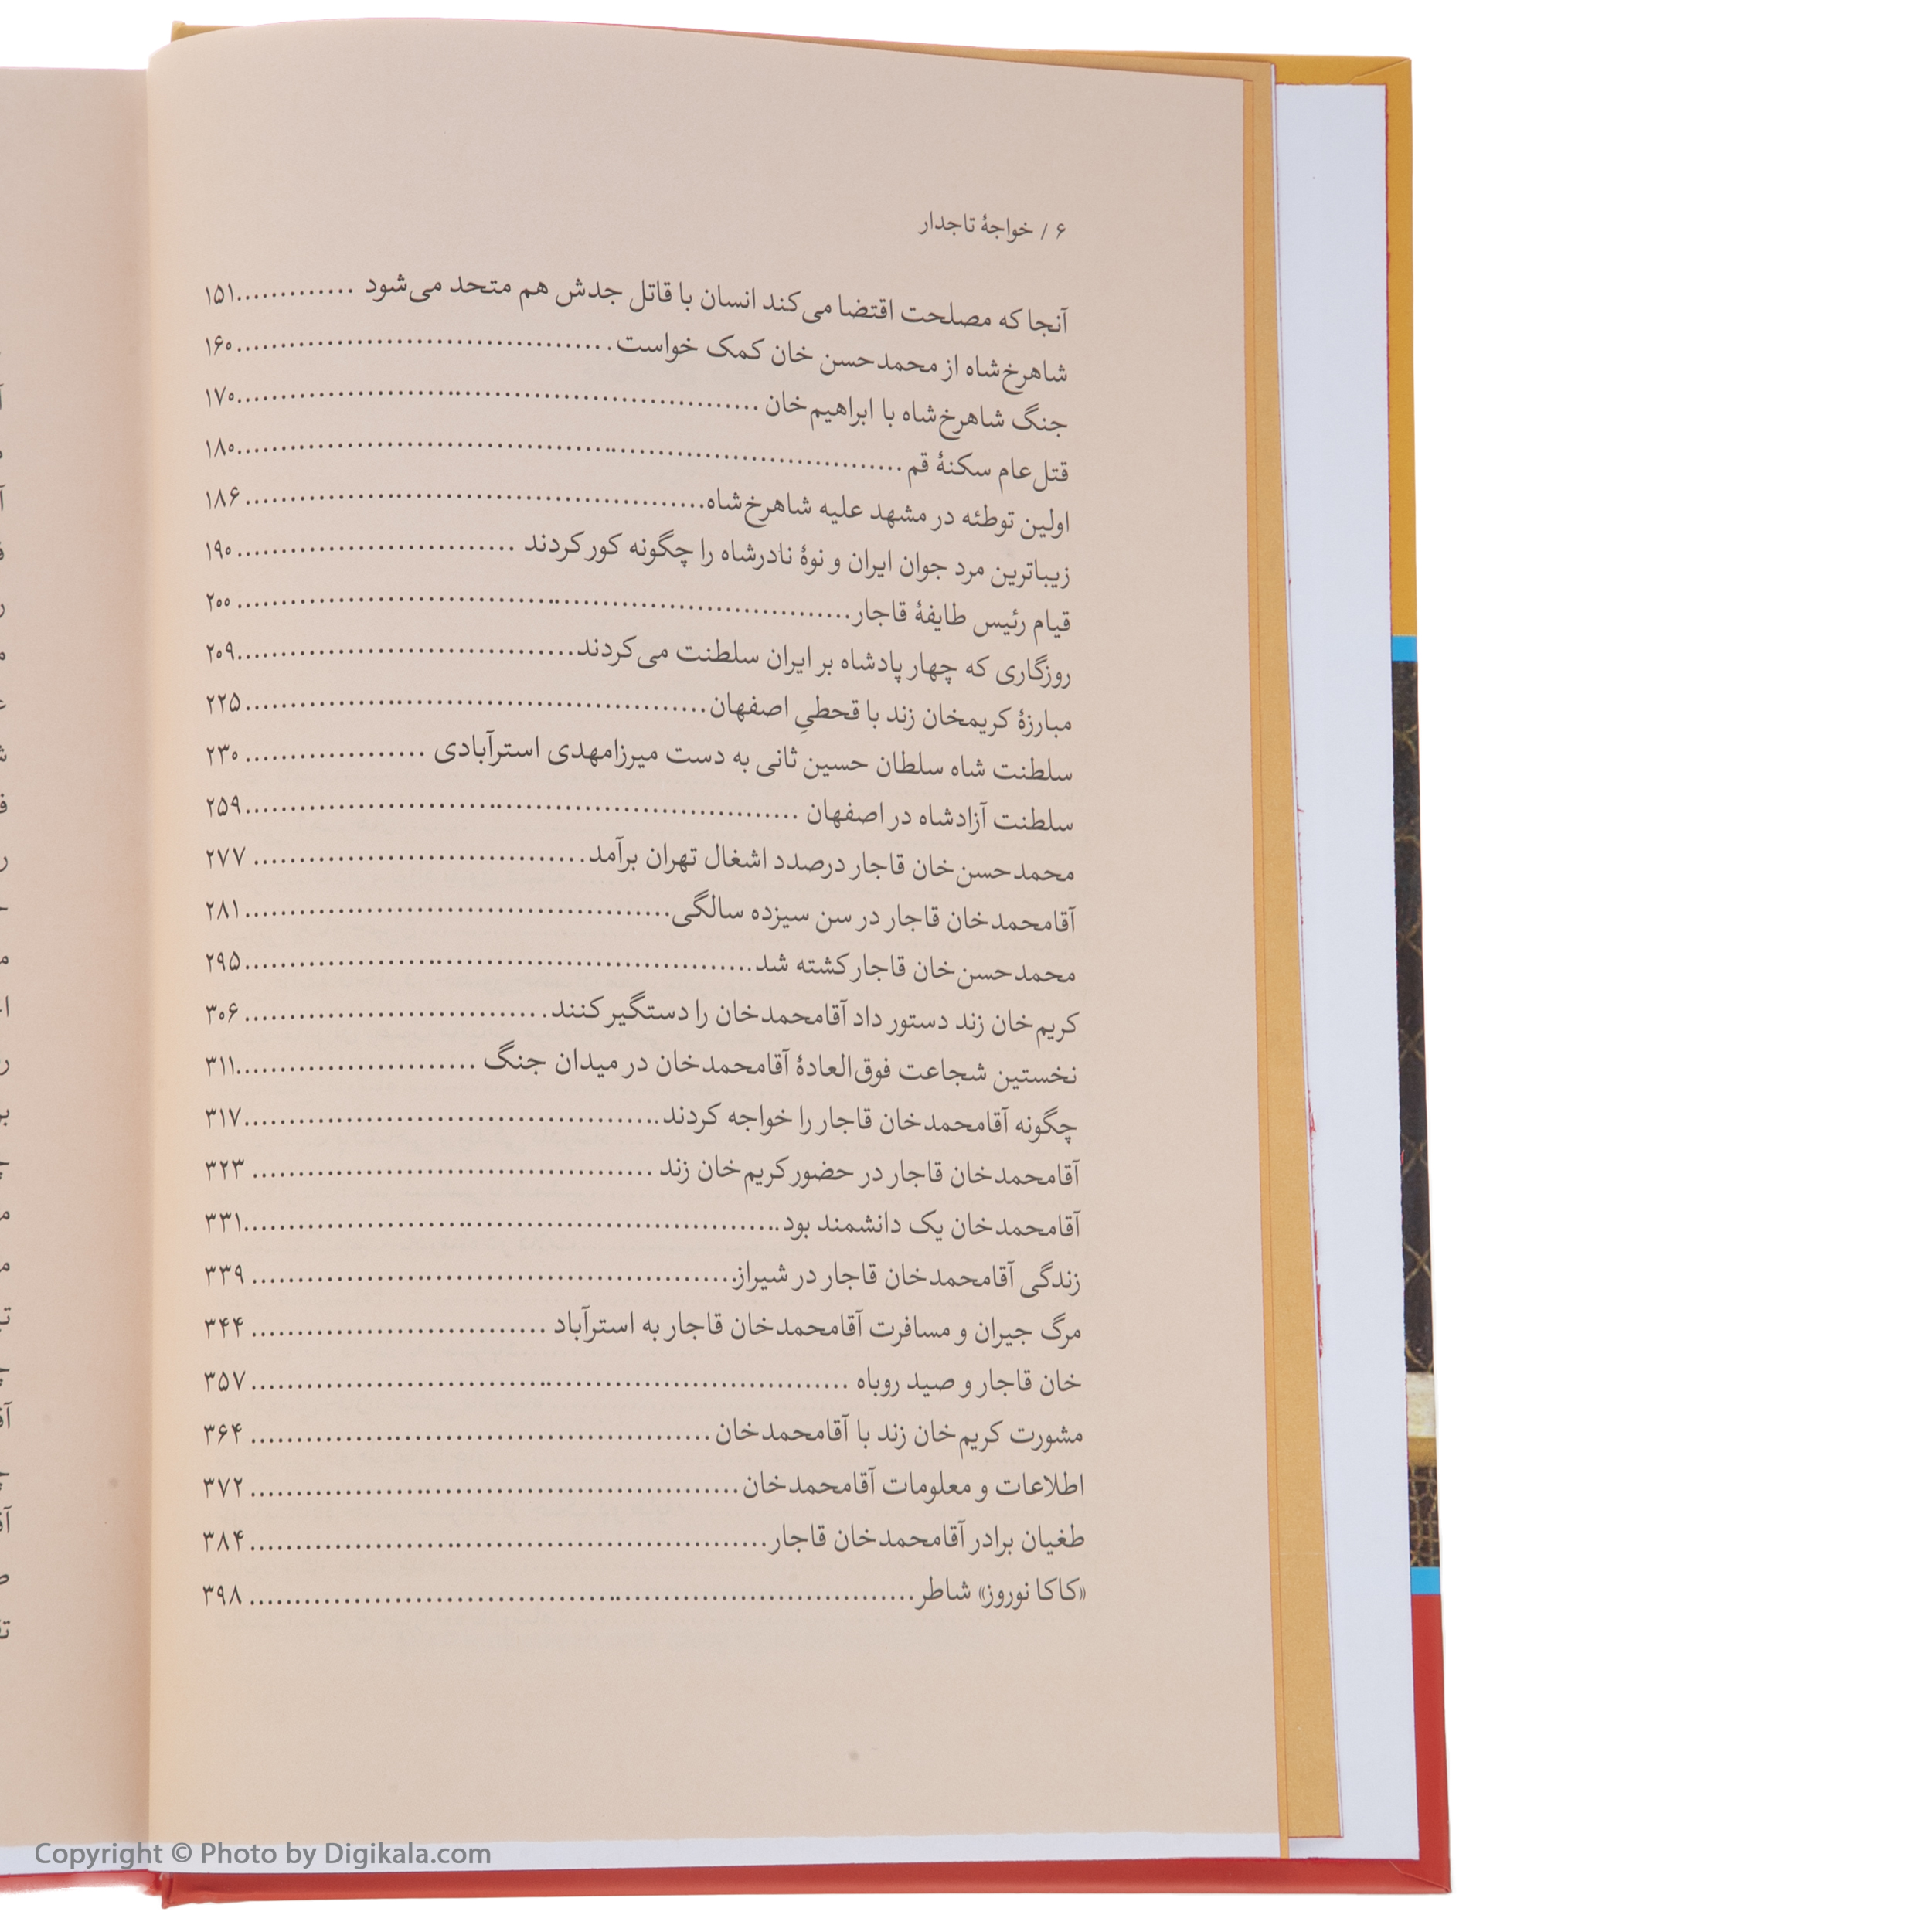 ۶ / خواجهٔ تاجدار
آنجا که مصلحت اقتضا می‌کند انسان با قاتل جدش هم متحد می‌شود ............. ۱۵۱
شاهرخ‌شاه از محمدحسن خان کمک خواست ............. ۱۶۰
جنگ شاهرخ‌شاه با ابراهیم‌خان ............. ۱۷۰
قتل‌عام سکنهٔ قم ............. ۱۸۰
اولین توطئه در مشهد علیه شاهرخ‌شاه ............. ۱۸۶
زیباترین مرد جوان ایران و نوهٔ نادرشاه را چگونه کور کردند ............. ۱۹۰
قیام رئیس طایفهٔ قاجار ............. ۲۰۰
روزگاری که چهار پادشاه بر ایران سلطنت می‌کردند ............. ۲۰۹
مبارزهٔ کریمخان زند با قحطیِ اصفهان ............. ۲۲۵
سلطنت شاه سلطان حسین ثانی به دست میرزامهدی استرآبادی ............. ۲۳۰
سلطنت آزادشاه در اصفهان ............. ۲۵۹
محمدحسن‌خان قاجار درصدد اشغال تهران برآمد ............. ۲۷۷
آقامحمدخان قاجار در سن سیزده سالگی ............. ۲۸۱
محمدحسن‌خان قاجار کشته شد ............. ۲۹۵
کریم‌خان زند دستور داد آقامحمدخان را دستگیر کنند ............. ۳۰۶
نخستین شجاعت فوق‌العادهٔ آقامحمدخان در میدان جنگ ............. ۳۱۱
چگونه آقامحمدخان قاجار را خواجه کردند ............. ۳۱۷
آقامحمدخان قاجار در حضور کریم‌خان زند ............. ۳۲۳
آقامحمدخان یک دانشمند بود ............. ۳۳۱
زندگی آقامحمدخان قاجار در شیراز ............. ۳۳۹
مرگ جیران و مسافرت آقامحمدخان قاجار به استرآباد ............. ۳۴۴
خان قاجار و صید روباه ............. ۳۵۷
مشورت کریم‌خان زند با آقامحمدخان ............. ۳۶۴
اطلاعات و معلومات آقامحمدخان ............. ۳۷۲
طغیان برادر آقامحمدخان قاجار ............. ۳۸۴
«کاکا نوروز» شاطر ............. ۳۹۸
Copyright © Photo by Digikala.com